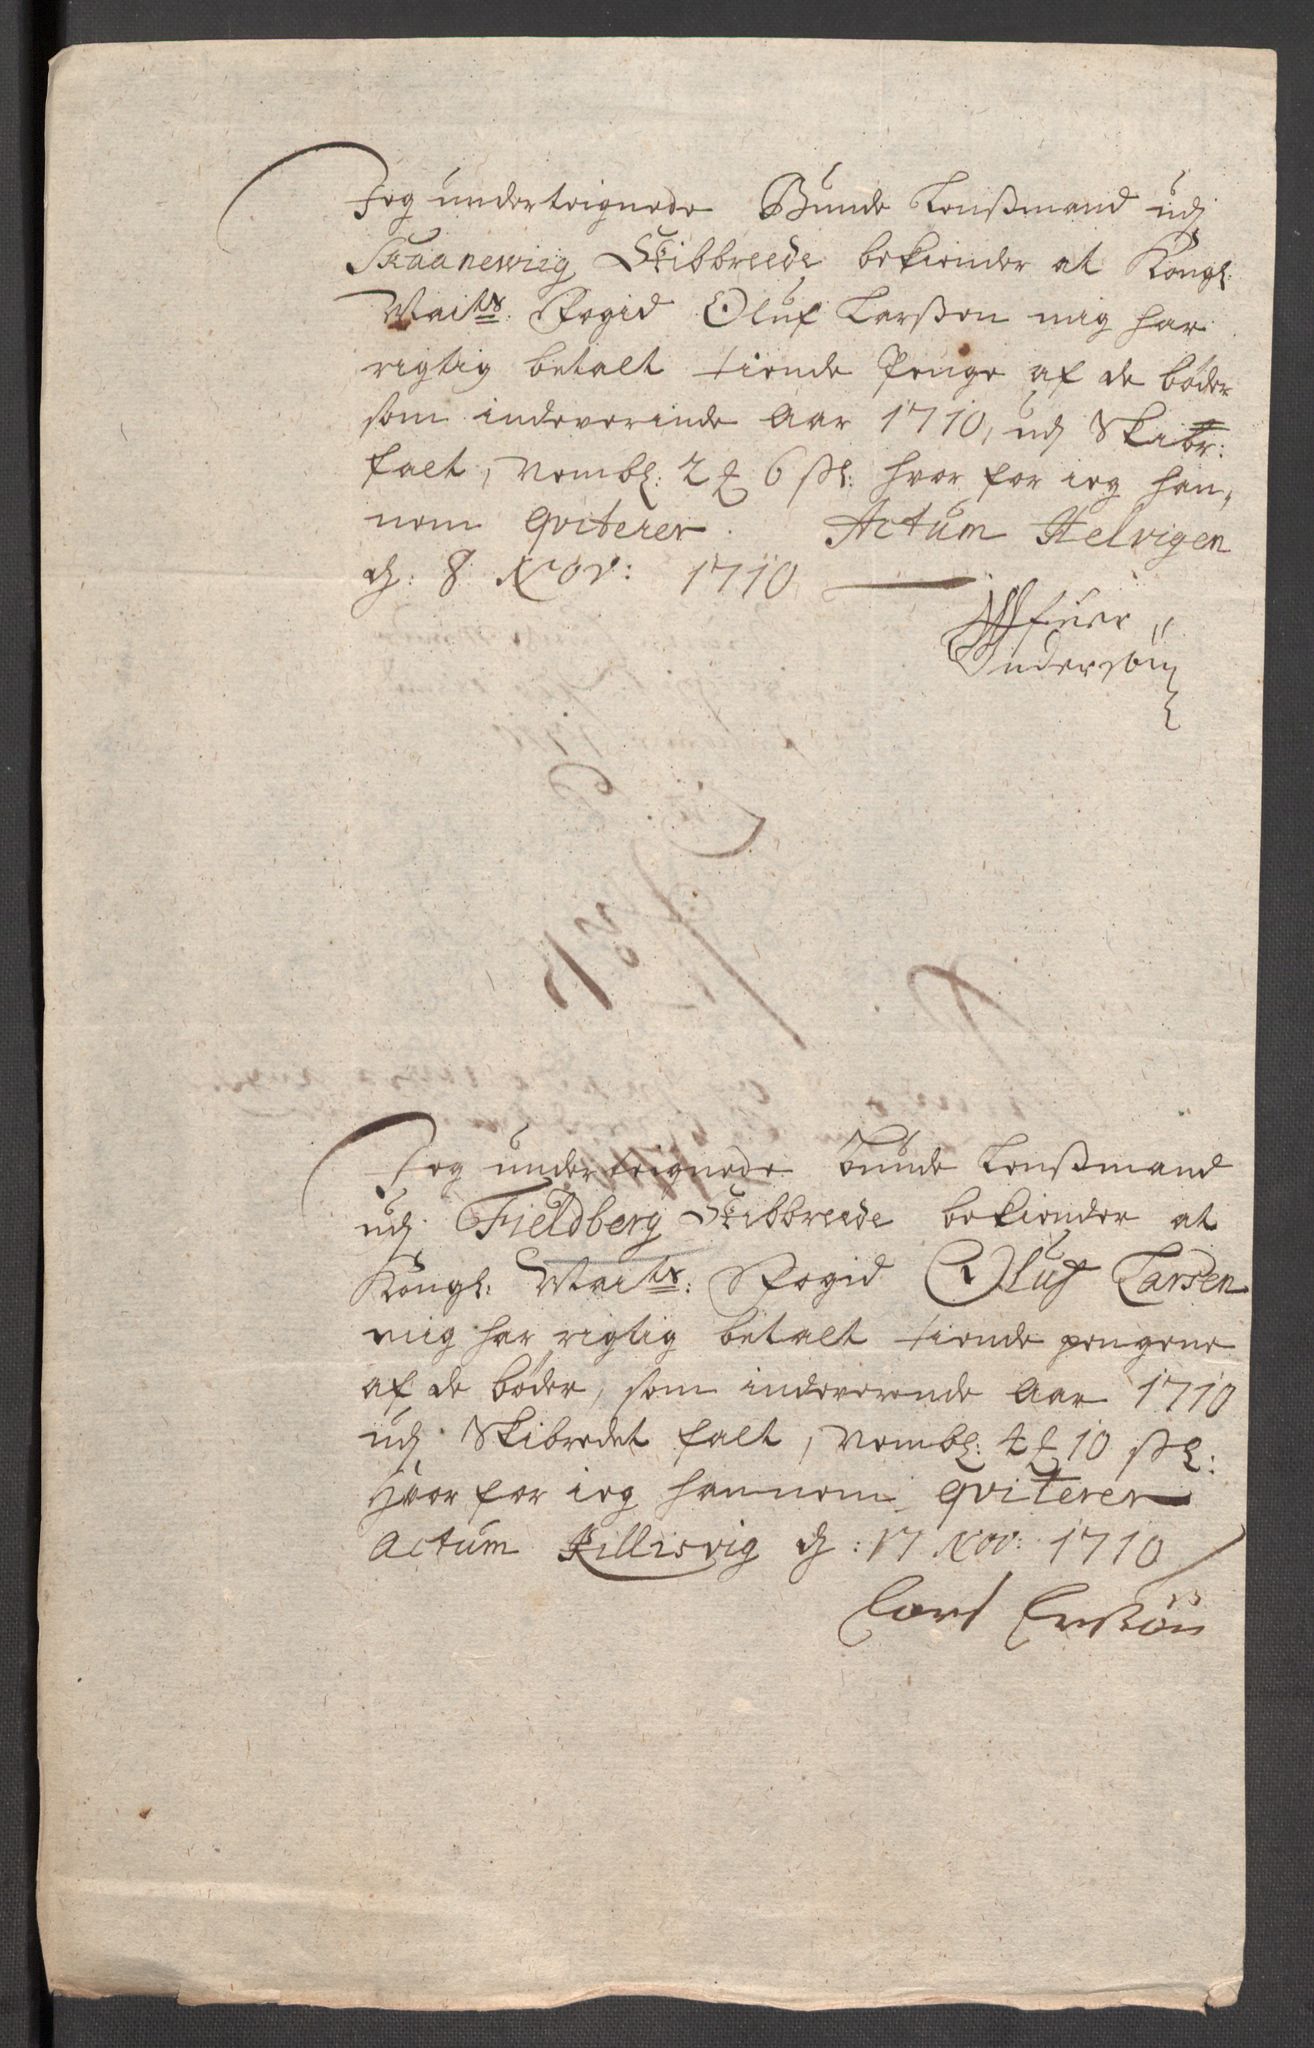 Jeg underteignede Bunde Lensßmand udj
Skaanewiig Skibbreede bekiender at Kongl:
Maits: Fogid Oluf Larsßen mig har
rigtig betalt tiende Penge af de bøder
som indeverinde Aar 1710, udj Skibr:
falt, Nembl: 2 6 sk: hvor for ieg han-
nem qviterer. Actum Helvigen
dj: 8 Nov: 1710
Andersøn
Jeg underteignede bunde Lensßmand
udj Fieldberg Skibbreede bekiender at
Kongl: Maits: Fogid Oluf Larsen
mig har rigtig betalt tiende pengene
af de bøder, som indeverende Aar 1710
udj Skibredet falt, Nembl: 4 10 sk:
Hvor for ieg hannem qviterer
Actum Killisvig dj: 17 Nov: 1710